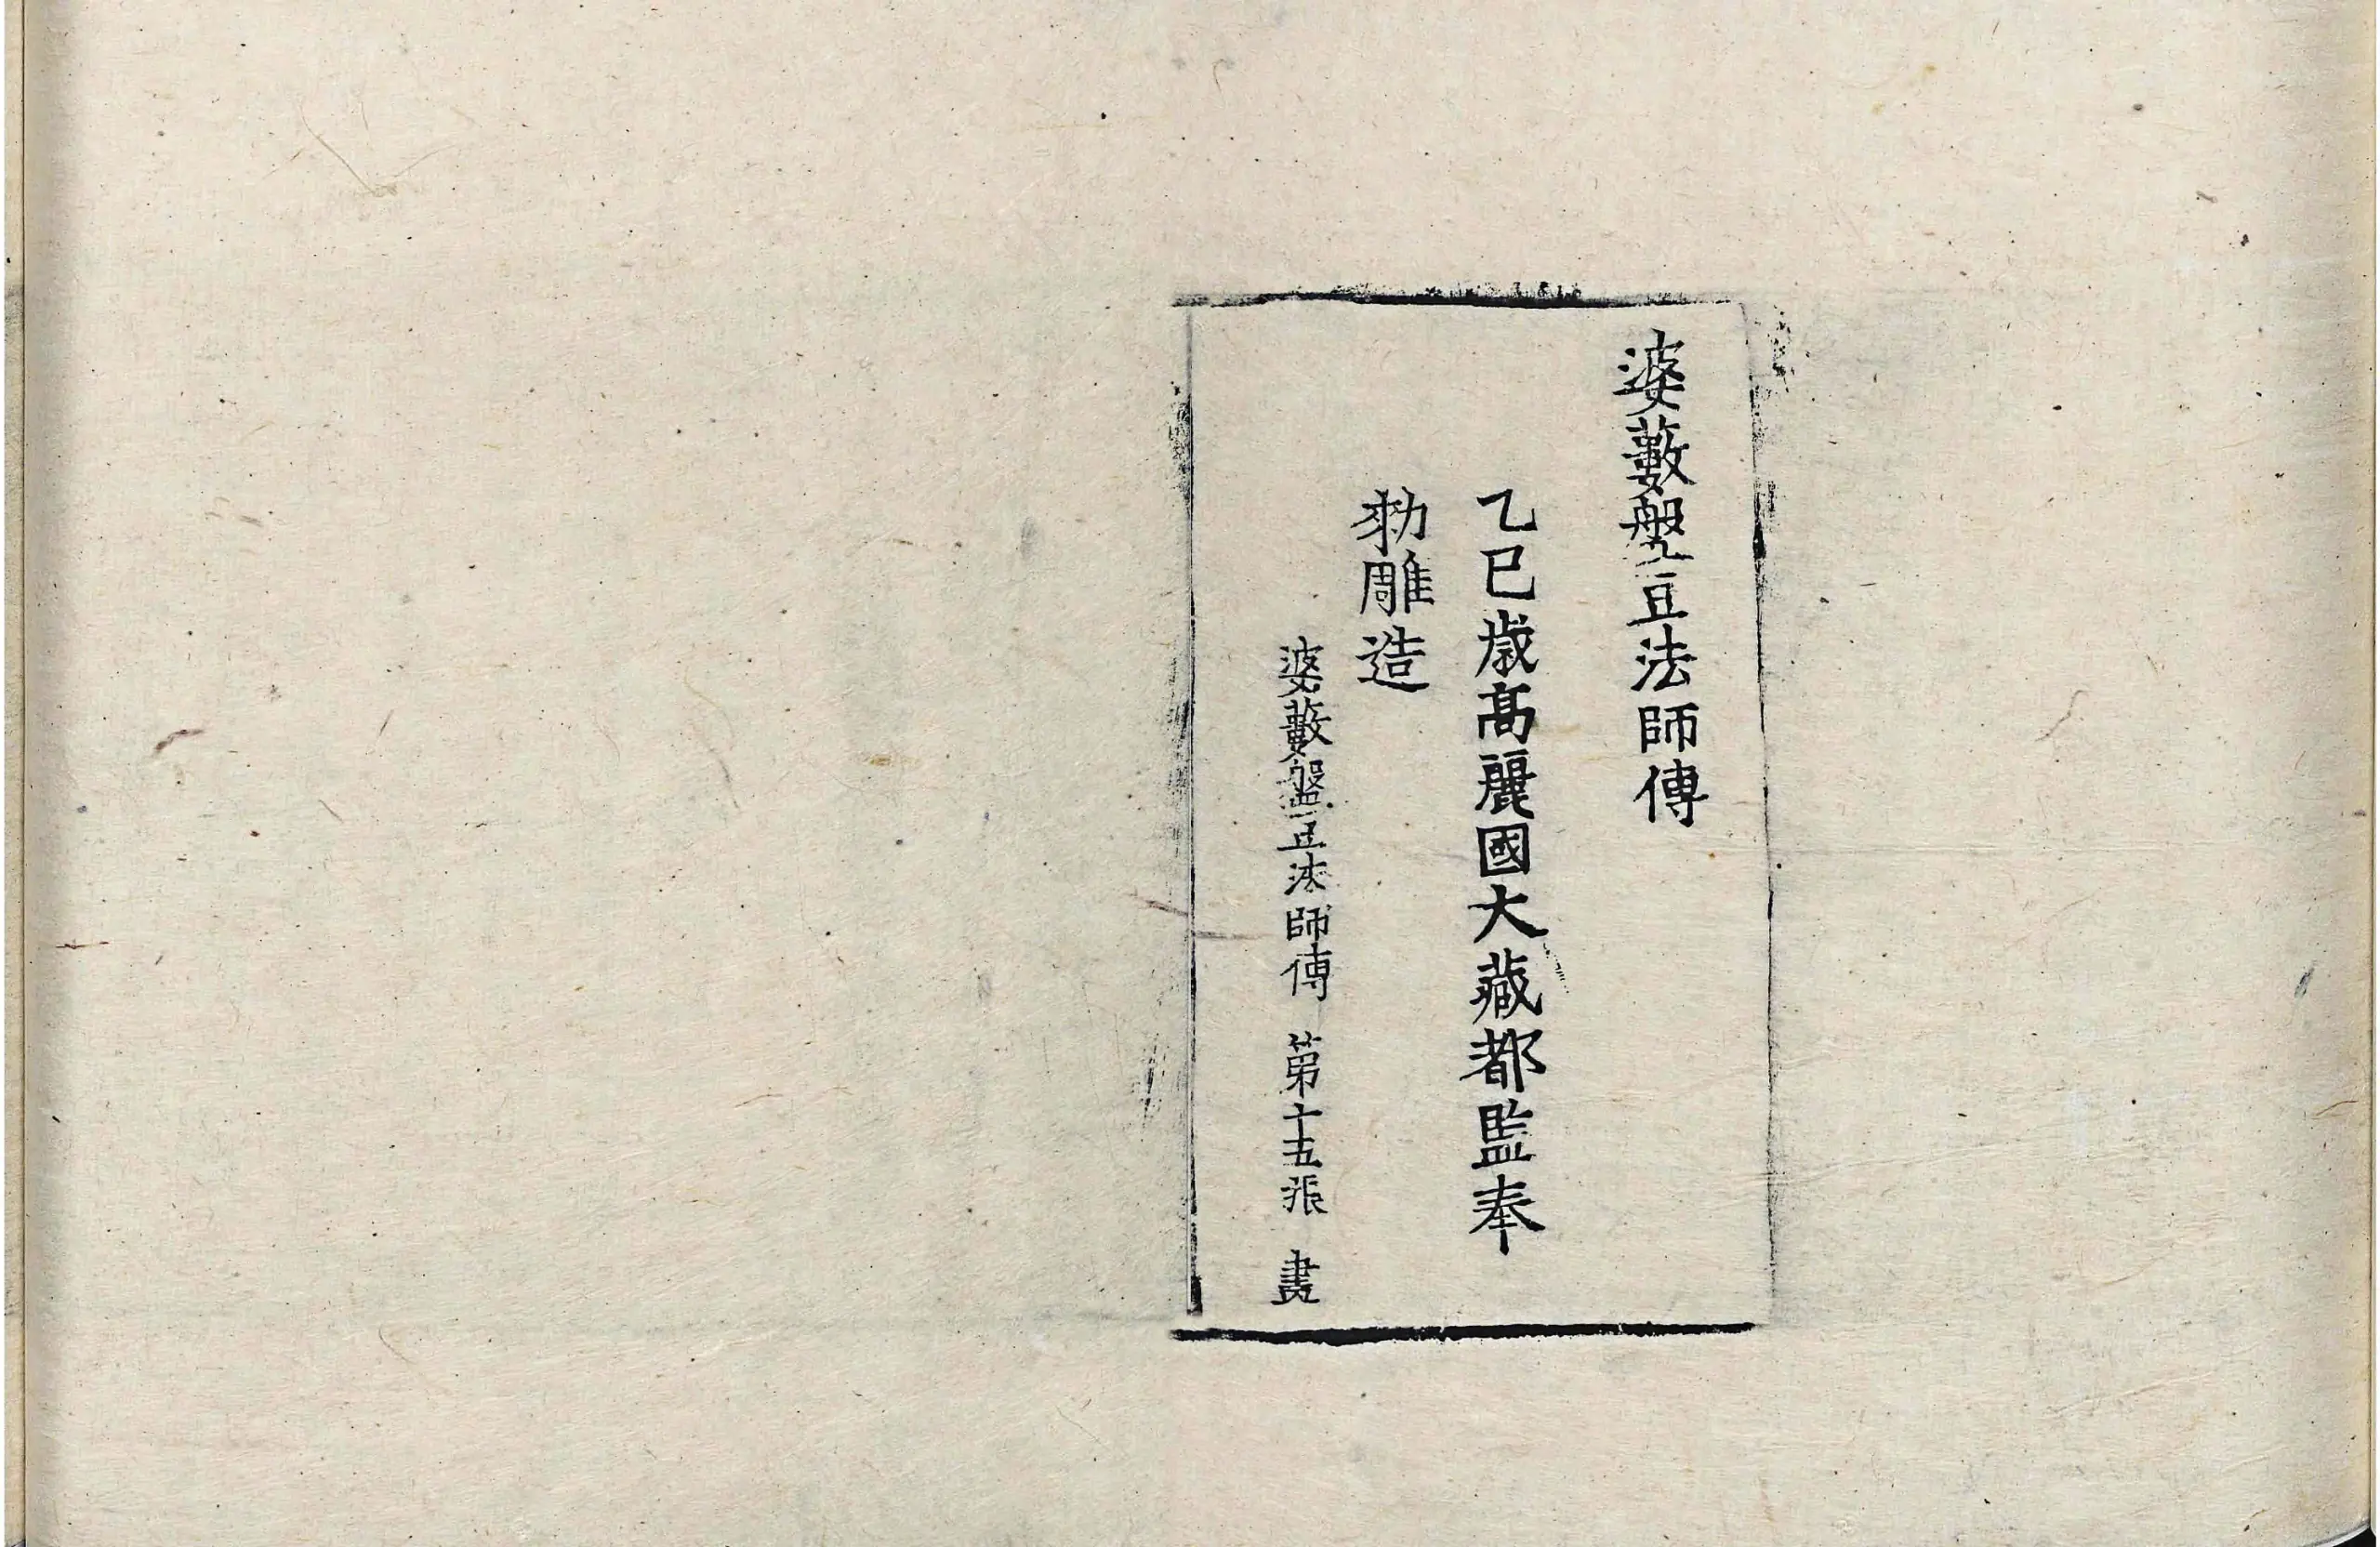 婆藪槃豆法師傳
乙巳歳高麗國大藏都監奉
勑雕造
婆藪盤豆法師傳 第十五張 畫